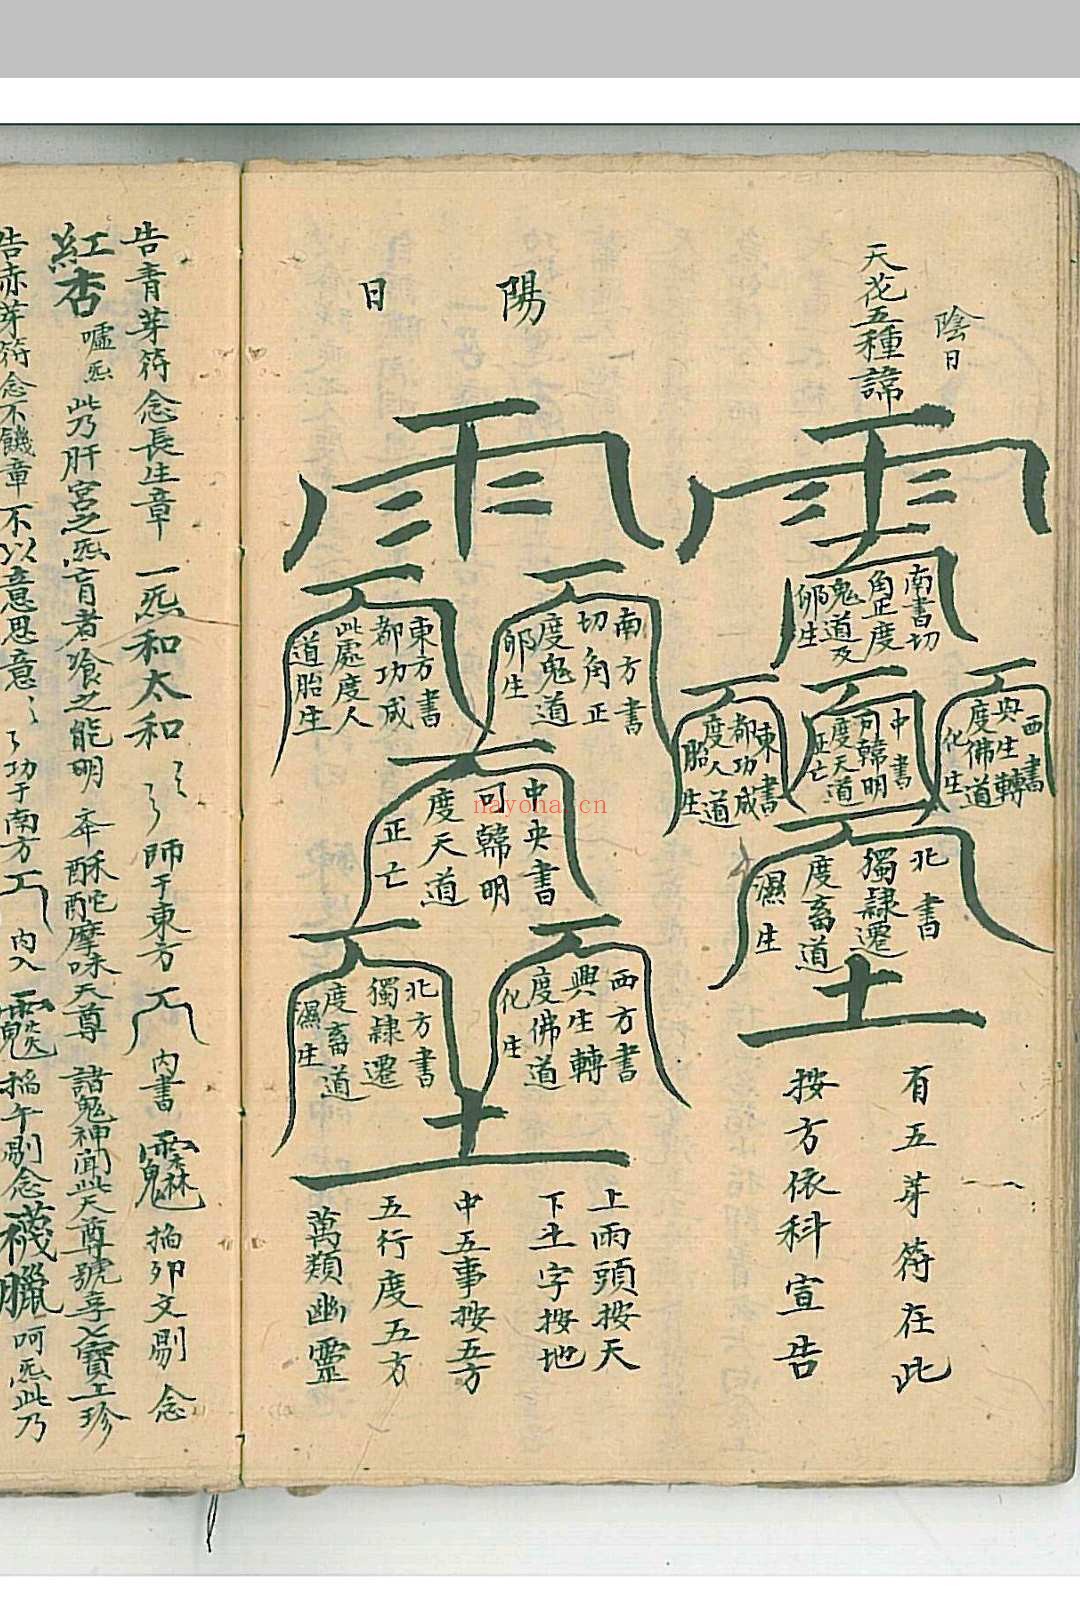 陰日
天花五種諱
南書切
角正度
鬼道及
卵生
西書
興生轉
度佛道
化生
中書
可韓明
度天道
正亡
東書
都功成
度人道
胎生
北書
獨隸遷
度畜道
濕生
有五芽符在此
按方依科宣告
陽日
南方書
切角正
度鬼道
卵生
東方書
都功成
此處度人
道胎生
中央書
可韓明
度天道
正亡
西方書
興生轉
度佛道
化生
北方書
獨隸遷
度畜道
濕生
上雨頭按天
下土字按地
中五事按五方
五行度五方
萬類幽靈
告青芽符念長生章 一炁和太和 師于東方 內書 掐卯文剔 念
紅杏 噓炁 此乃肝宮之炁盲者飡之能明 酥酡摩味天尊 諸鬼神聞此天尊號享七寶玉珍
告赤芽符念不饑章 不以意思意 功于南方 內入 掐午剔念 呵炁此乃
nayona.cn